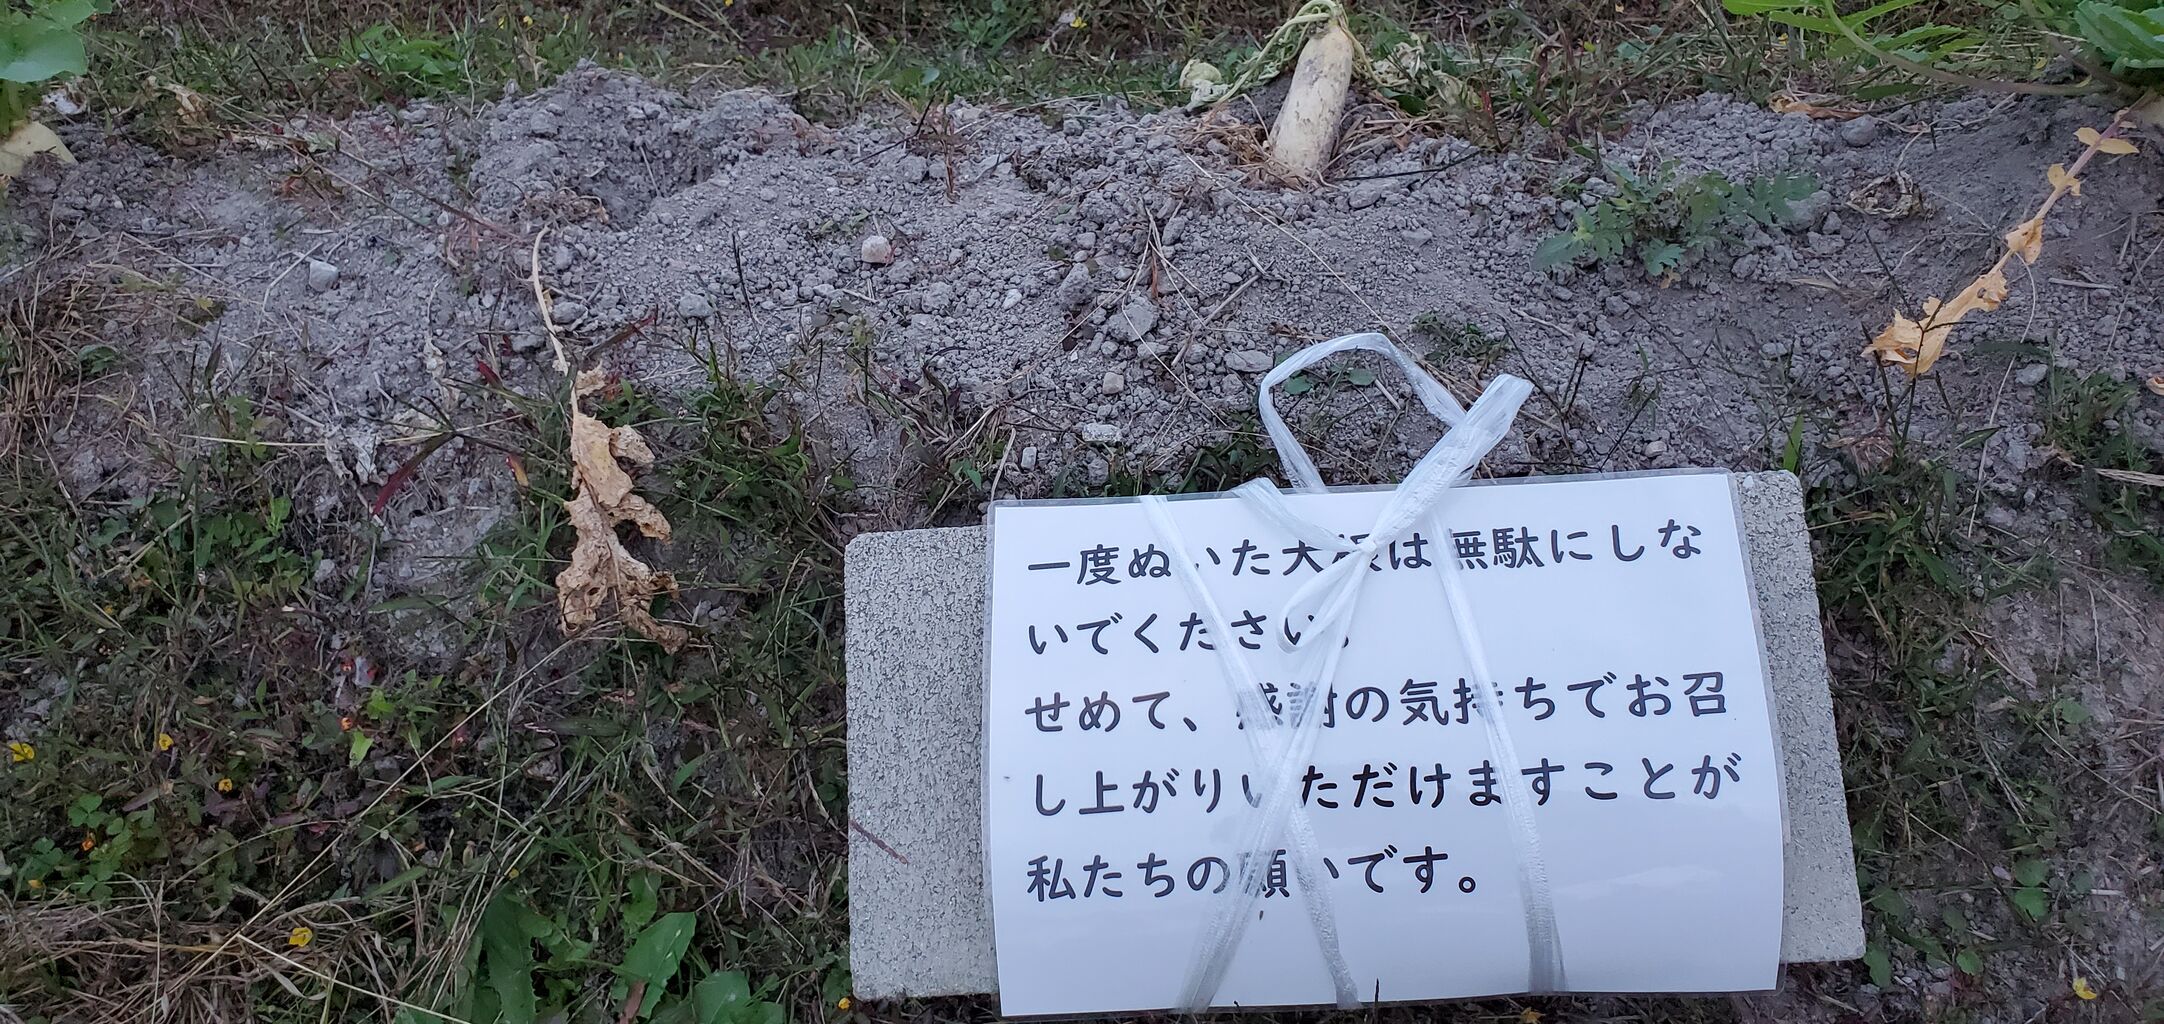 一度ぬいた大根は無駄にしな
いでください。
せめて、感謝の気持ちでお召
し上がりいただけますことが
私たちの願いです。